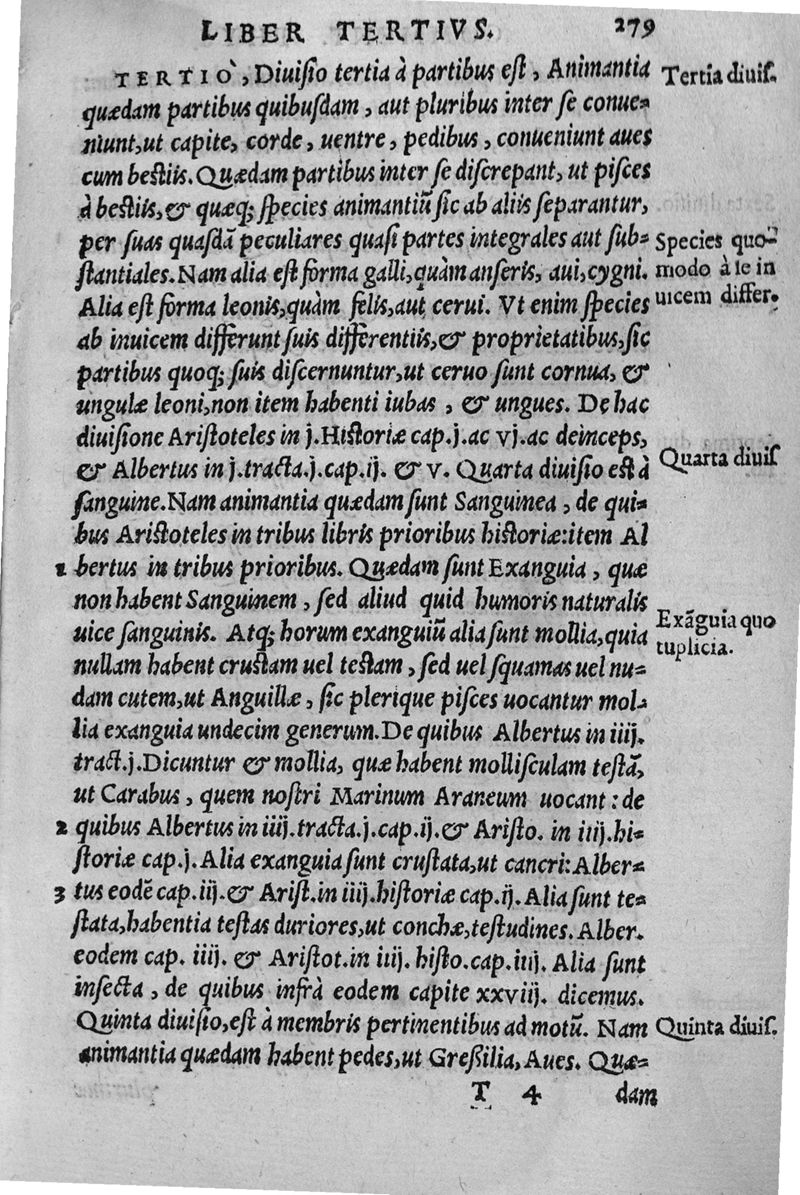 LIBER TERTIVS. 279
TERTIÒ, Diuisio tertia à partibus est, Animantia
Tertia diuis.
quædam partibus quibusdam, aut pluribus inter se conue=
niunt, ut capite, corde, uentre, pedibus, conueniunt aues
cum bestiis. Quædam partibus inter se discrepant, ut pisces
à bestiis, & quæq; species animantiũ sic ab aliis separantur,
per suas quasdã peculiares quasi partes integrales aut sub=
Species quo=
stantiales. Nam alia est forma galli, quàm anseris, aui, cygni.
modo à se in
Alia est forma leonis, quàm felis, aut cerui. Vt enim species
uicem differ.
ab inuicem differunt suis differentiis, & proprietatibus, sic
partibus quoq; suis discernuntur, ut ceruo sunt cornua, &
ungulæ leoni, non item habenti iubas, & ungues. De hac
diuisione Aristoteles in j. Historiæ cap. j. ac vj. ac deinceps,
& Albertus in j. tracta. j. cap. ij. & v. Quarta diuisio est à
Quarta diuis
sanguine. Nam animantia quædam sunt Sanguinea, de qui=
bus Aristoteles in tribus libris prioribus historiæ: item Al
1 bertus in tribus prioribus. Quædam sunt Exanguia, quæ
non habent Sanguinem, sed aliud quid humoris naturalis
Exãguia quo
uice sanguinis. Atq; horum exanguiũ alia sunt mollia, quia
tuplicia.
nullam habent crustam uel testam, sed uel squamas uel nu=
dam cutem, ut Anguillæ, sic plerique pisces uocantur mol=
lia exanguia undecim generum. De quibus Albertus in iiij.
tract. j. Dicuntur & mollia, quæ habent mollisculam testã,
ut Carabus, quem nostri Marinum Araneum uocant: de
2 quibus Albertus in iiij. tracta. j. cap. ij. & Aristo. in iiij. hi=
storiæ cap. j. Alia exanguia sunt crustata, ut cancri: Alber=
3 tus eodẽ cap. iij. & Arist. in iiij. historiæ cap. ij. Alia sunt te=
stata, habentia testas duriores, ut conchæ, testudines. Alber.
eodem cap. iiij. & Aristot. in iiij. histo. cap. iiij. Alia sunt
insecta, de quibus infrà eodem capite xxviij. dicemus.
Quinta diuisio, est à membris pertinentibus ad motũ. Nam
Quinta diuis.
animantia quædam habent pedes, ut Greßilia, Aues. Quæ=
T 4 dam